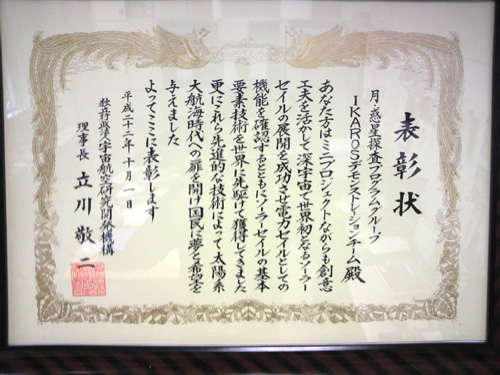 表彰状
月・惑星探査プログラムグループ
IKAROSデモンストレーションチーム殿
あなた方はミニプロジェクトながらも創意
工夫を活かして深宇宙で世界初となるソーラー
セイルの展開を成功させ電力セイルとしての
機能を確認するとともにソーラーセイルの基本
要素技術を世界に先駆けて獲得してきました
更にこれら先進的な技術によって太陽系
大航海時代への扉を開け国民に夢と希望を
与えました
よってここに表彰します
平成二十二年十月一日
独立行政法人宇宙航空研究開発機構
理事長 立川敬二